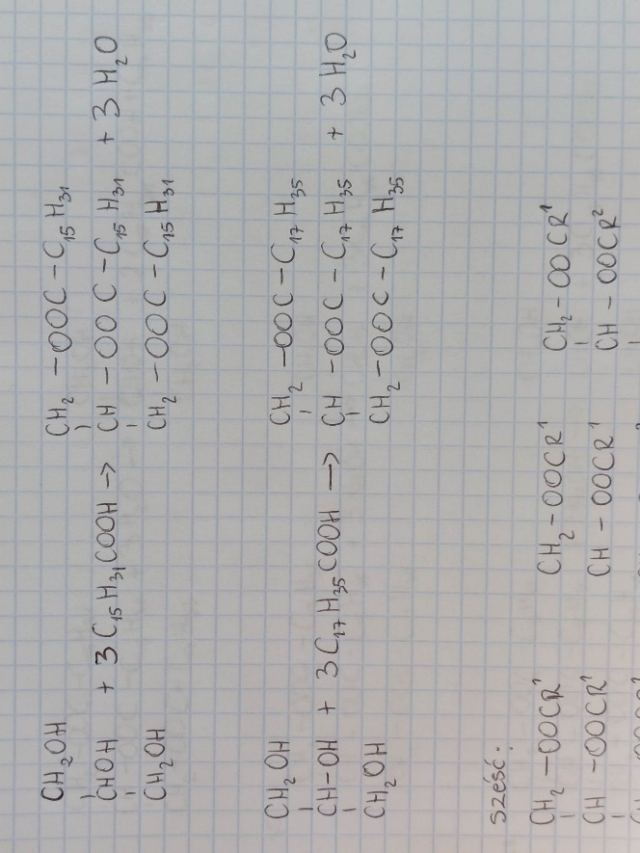 CH₂OH CH₂ - OOC - C₁₅H₃₁
CHOH + 3 C₁₅H₃₁COOH → CH - OOC - C₁₅H₃₁ + 3 H₂O
CH₂OH CH₂ - OOC - C₁₅H₃₁
CH₂OH CH₂ - OOC - C₁₇H₃₅
CH-OH + 3 C₁₇H₃₅COOH → CH - OOC - C₁₇H₃₅ + 3 H₂O
CH₂OH CH₂ - OOC - C₁₇H₃₅
sześć:
CH₂ - OOCR¹ CH₂ - OOCR¹ CH₂ - OOCR¹
CH - OOCR¹ CH - OOCR¹ CH - OOCR²